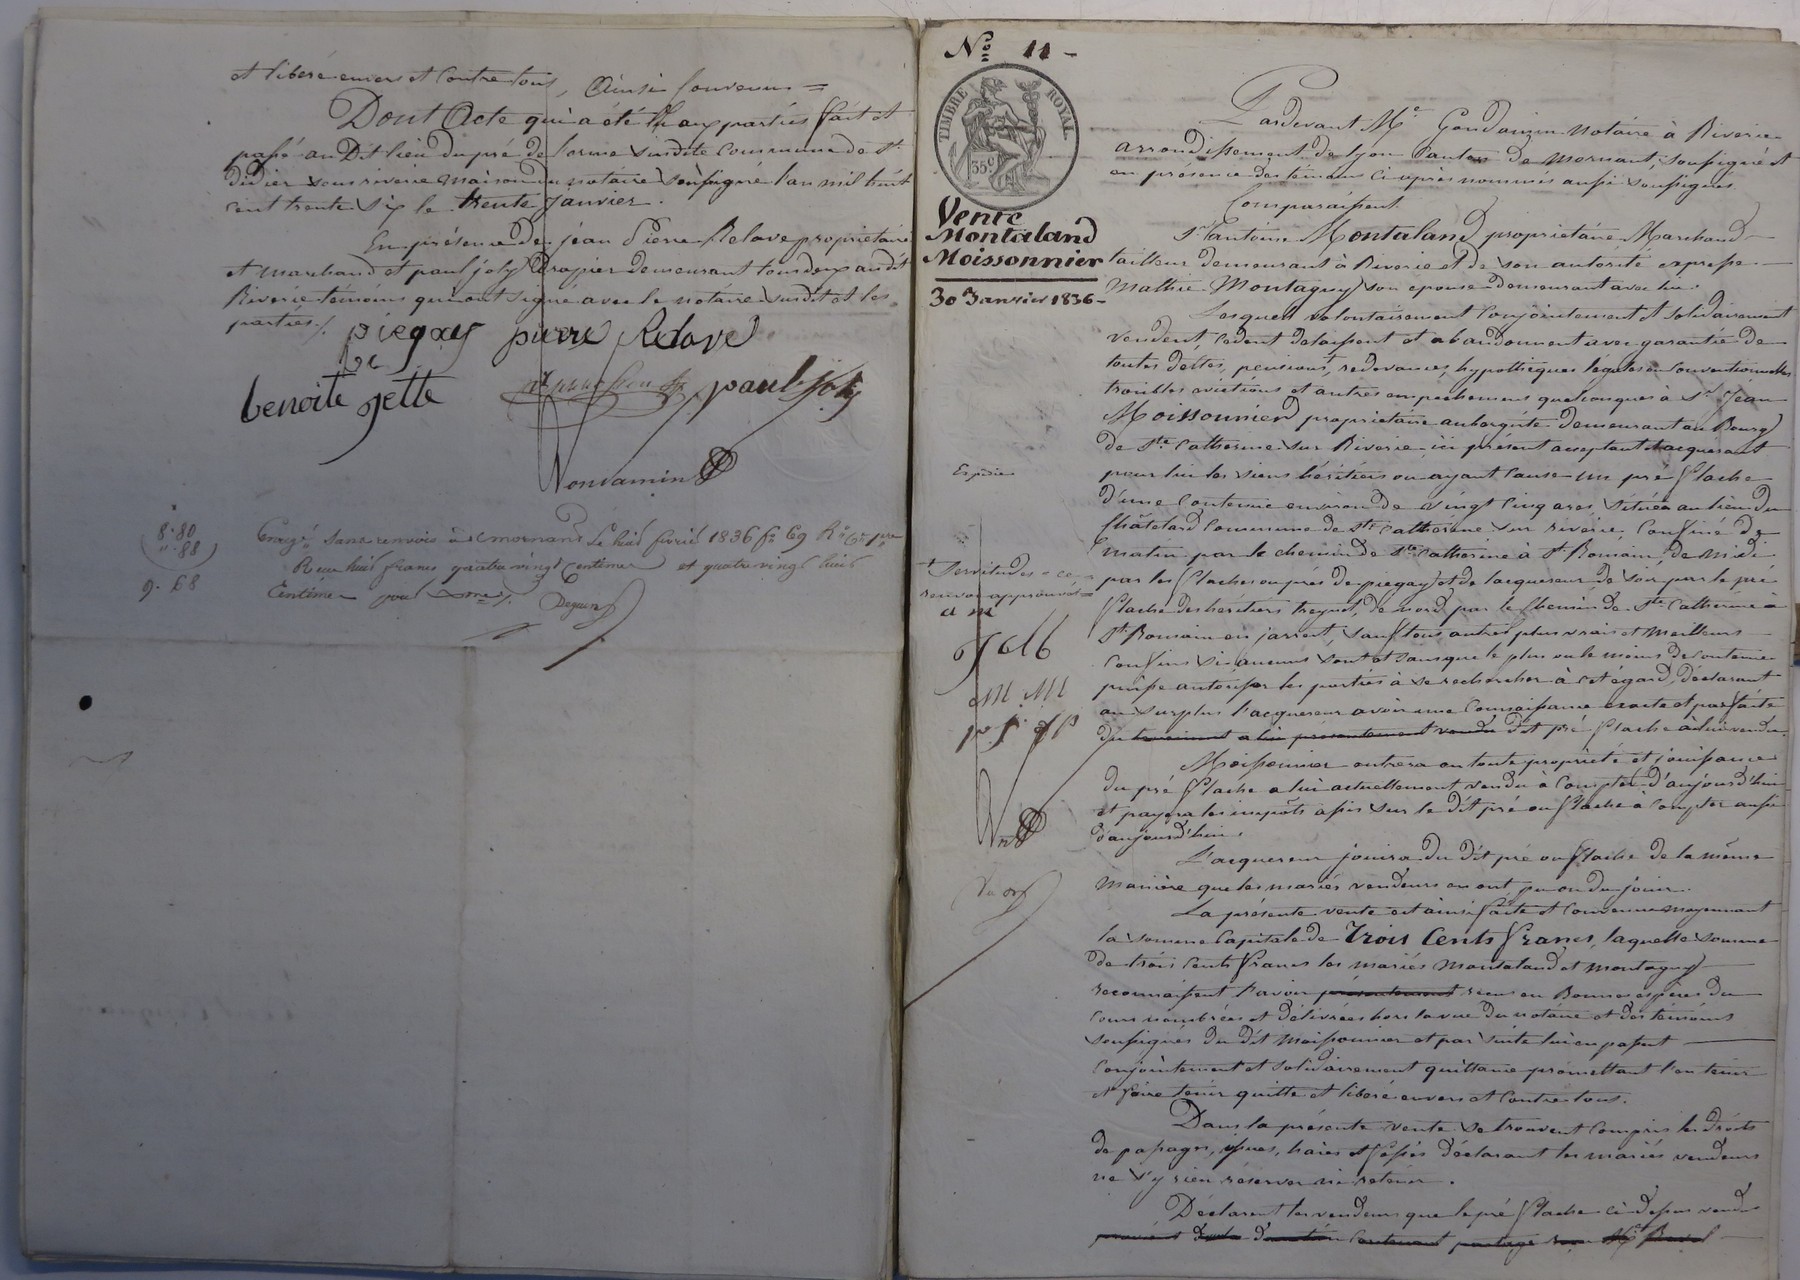 et libéré envers et contre tous, Ainsi Convenu =
Dont Acte qui a été lu aux parties fait et
passé au Dit lieu du pré de lorme susdite Commune de St.
didier sous riverie maison du notaire soussigné l'an mil huit
cent trente six le trente janvier.
En présence de jean Pierre Relave propriétaire
et marchand et paul joly drapier demeurant tous deux au dit
Riverie témoins qui ont signé avec le notaire susdit et les
parties./.
piegay pierre Relave
benoite jette paul joly
8-80
"-88
9-68
Enregé sans renvois à mornant Le huit fevrié 1836 fo 69 Ro
Reçu huit francs quatre vingt Centimes et quatre vingt huit
Centimes pour
No 11 -
TIMBRE ROYAL
35c
Vente
Montaland
Moissonnier
30 Janvier 1836-
Pardevant Me notaire à Riverie
arrondissement de Lyon Canton de Mornant, soussigné et
en présence des témoins ci après nommés aussi soussignés.
Comparaissent
Sr antoine Montaland propriétaire Marchand
tailleur demeurant à Riverie et de son autorité expresse
Mathie Montagny son epouse demeurant avec lui.
Lesquels volontairement Conjointement et solidairement
vendent, cedent delaissent et abandonnent avec garantie de
toutes dettes, pensions, + redevances, hypothèques légales ou Conventionnelles
troubles evictions et autres empechemens quelconques à Sr Jean
Moissonnier propriétaire aubergiste demeurant au Bourg
de Ste Catherine sur Riverie ici présent acceptant et acquerant
pour lui les siens héritiers ou ayant cause un pré flache
d'une Contenue environ de vingt cinq ares, située au lieu du
Châtelard Commune de Ste Catherine sur riverie, Confiné de
matin par le chemin de Ste Catherine à St Romain, de midi
par les flaches ou prés de piegay et de lacquereur de soir par le pré
flache des héritiers de nord par le Chemin de Ste Catherine à
St Romain en jarrest, sauf tous autres plus vrais et meilleurs
confins si aucuns sont et sans que le plus ou le moins de contenue
puisse autoriser les parties à se rechercher à cet égard, déclarant
au surplus l'acquereur avoir une Connaissance exacte et parfaite
du tenement a lui présentement vendu dit pré flache à lui vendu.
Moissonnier entrera en toute propriété et jouissance
du pré flache a lui actuellement vendu à Compter d'aujourd'hui
et payera les impôts assis sur le dit pré ou flache à Compter aussi
d'aujourd'hui.
L'acquereur jouira du dit pré ou flache de la même
manière que les mariés vendeurs en ont pu ou du jouir.
La présente vente est ainsi faite et Convenue moyennant
la somme Capitale de Trois Cents francs, laquelle somme
de trois Cents francs les mariés Montaland et Montagny
reconnaissent l'avoir présentement reçu en Bonnes espèces du
Cours nombrées et délivrées hors la vue du notaire et des témoins
soussignés du dit Moissonnier et par suite lui en passent
Conjointement et solidairement quittance promettant l'en tenir
et faire tenir quitte et libéré envers et Contre tous.
Dans la présente vente se trouvent Compris les droits
de passages, issues, haies et fossés déclarant les mariés vendeurs
ne s'y rien réserver ni retenir.
Déclarent les vendeurs que le pré flache ci dessus vendu
Expédié
+ servitudes =
renvoi approuvé =
a m
M. M